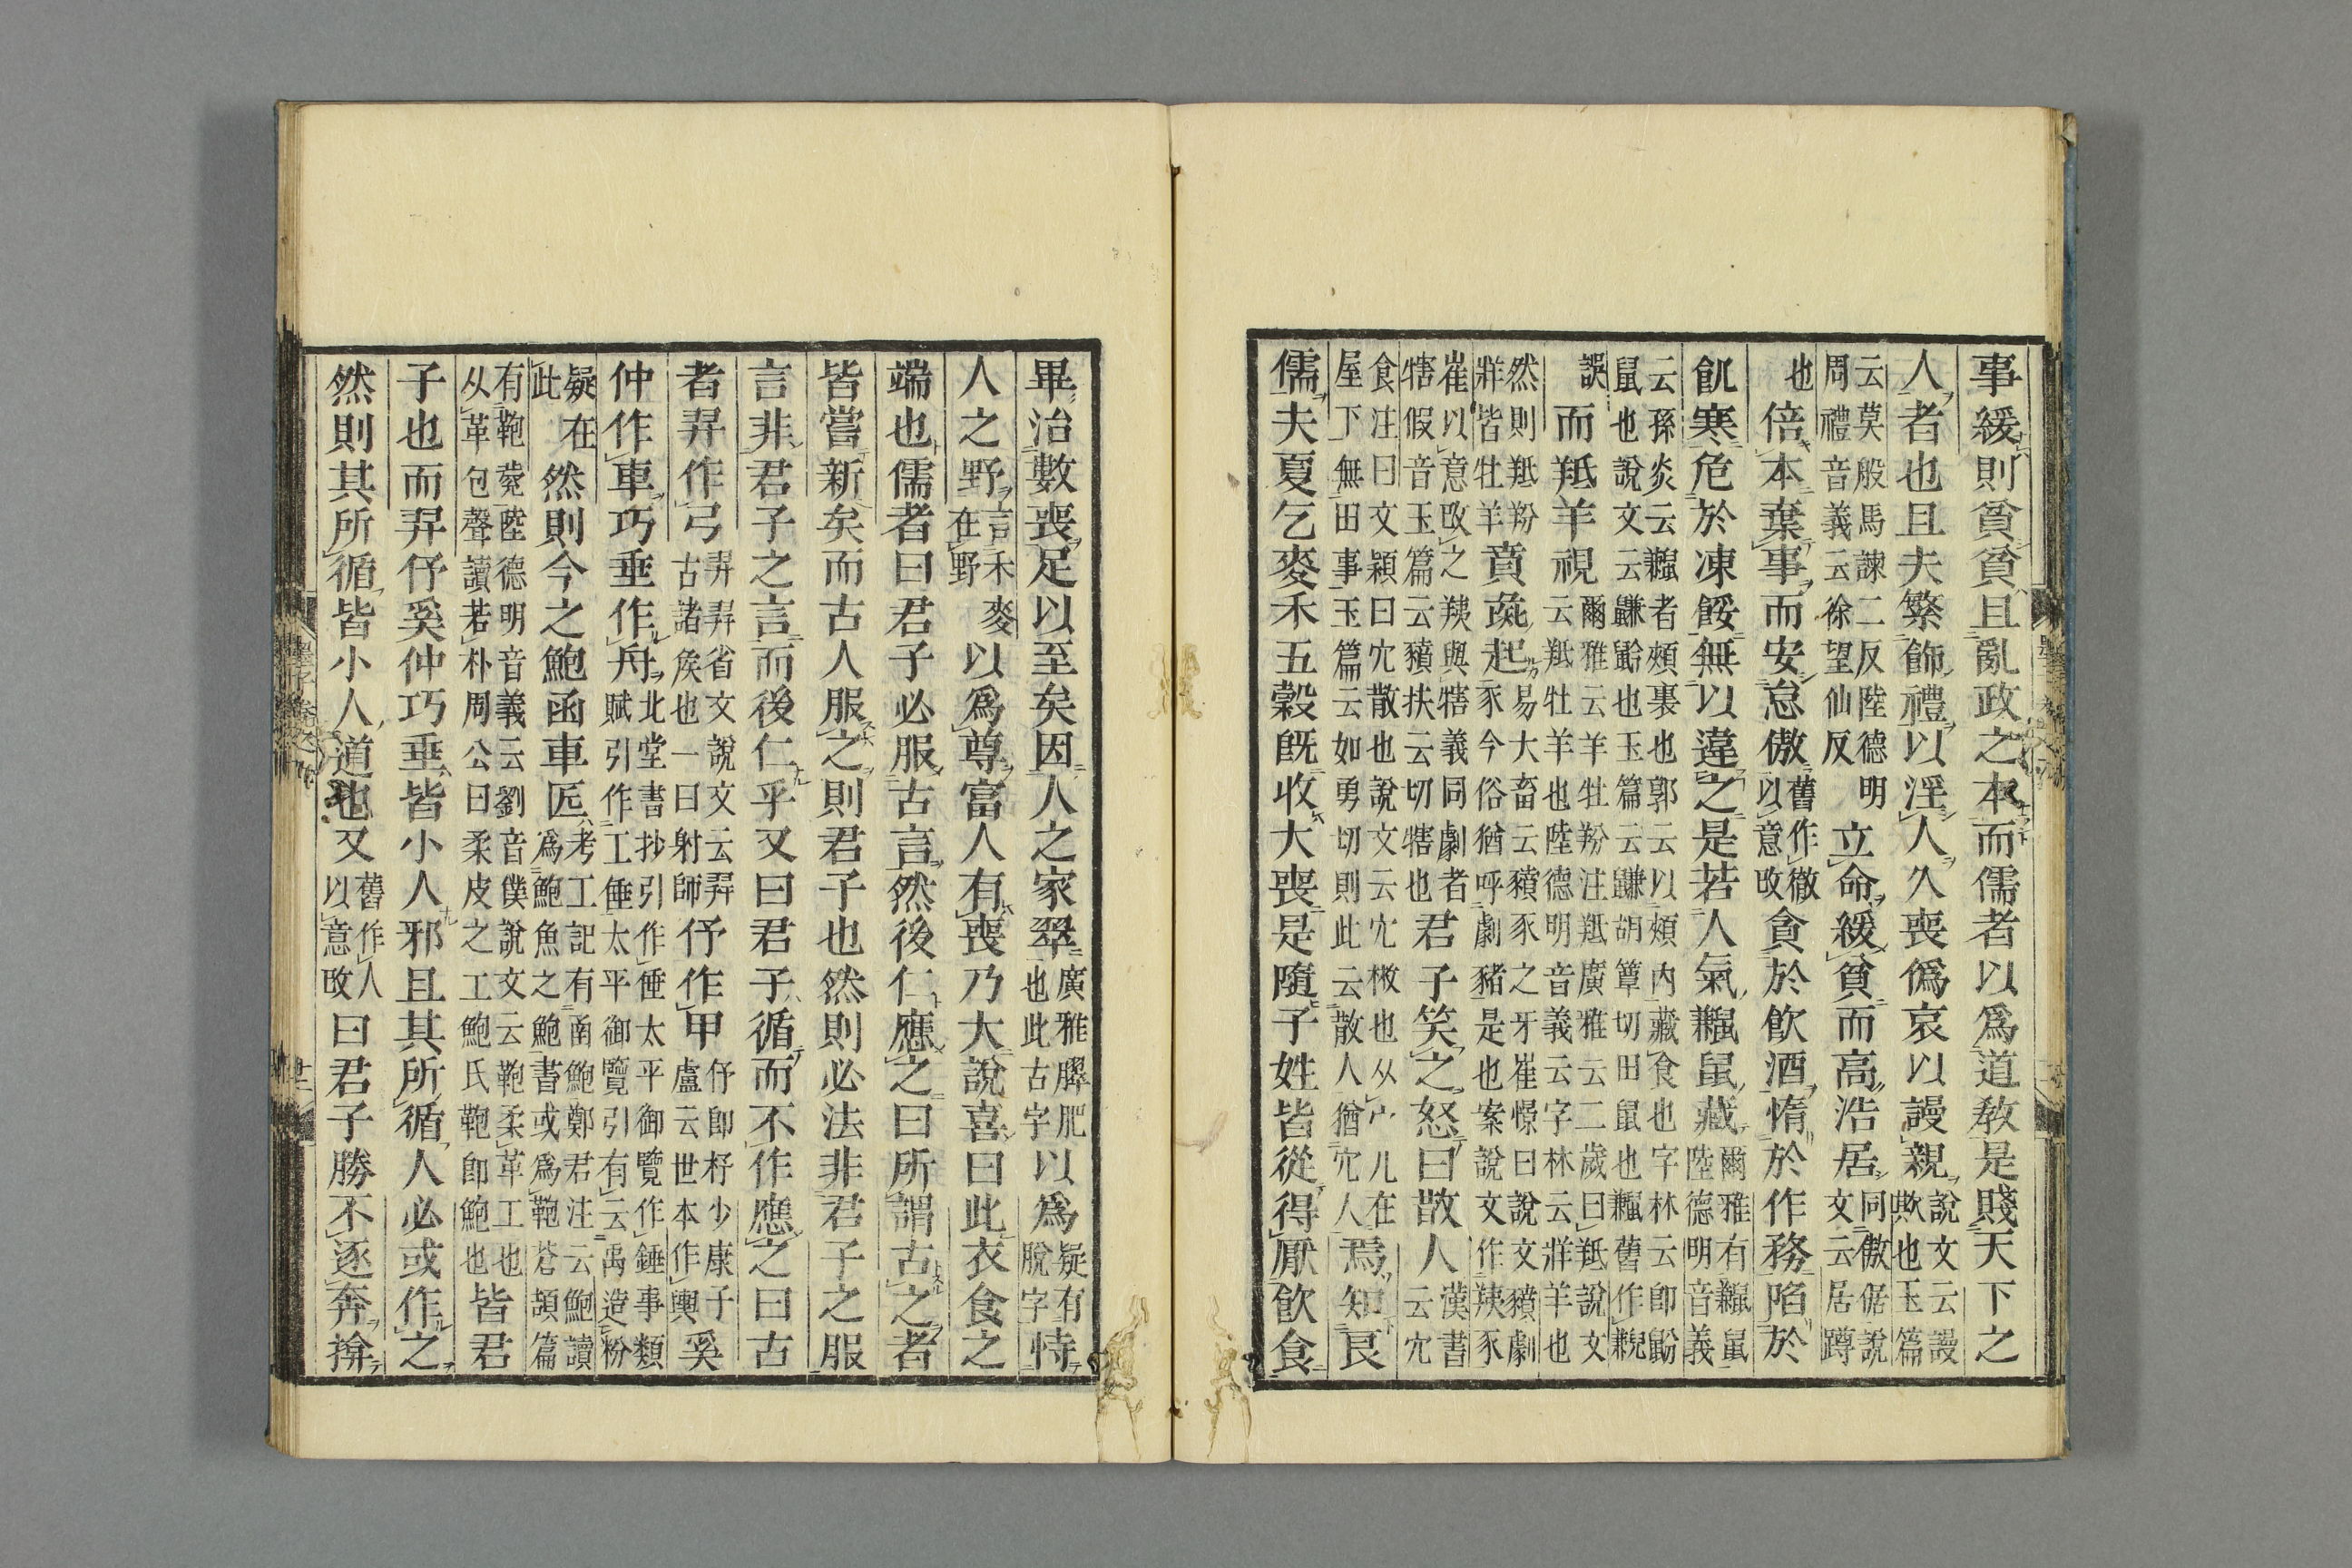 事緩則貧貧且亂政之本而儒者以爲道敎是賤天下之
人者也且夫繁飾禮以淫人久喪僞哀以謾親說文云謾欺也玉篇
云莫般馬諫二反陸德明周禮音義云徐望仙反立命緩貧而高浩居同傲倨說文云居蹲
也倍本棄事而安怠傲舊作徹以意改貪於飮酒惰於作務陷於
飢寒危於凍餒無以違之是若人氣䶅鼠藏爾雅有䶅鼠陸德明音義
云孫炎云䶅者頰裏也郭云以頰內藏食也字林云卽鼢鼠也說文云鼸鼢也玉篇云鼸胡簟切田鼠也䶅舊作
誤而羝羊視爾雅云羊牡羒注羝廣雅云二歲曰羝說文云羝牡羊也陸德明音義云字林云牂羊也
然則羝羒牂皆牡羊賁彘起易大畜云豶豕之牙崔憬曰說文豶劇豕今俗猶呼劇豬是也案說文作羠豕
崔以意改之羠與犗義同劇者犗假音玉篇云豶扶云切犗也君子笑之怒曰散人漢書云宂
食注曰文穎曰宂散也說文云宂也从宀儿在屋下無田事玉篇云如勇切則此云散人猶宂人焉知良
儒夫夏乞麥禾五穀旣收大喪是隨子姓皆從得厭飮食
畢治數喪足以至矣因人之家翠廣雅臎肥也此古字以爲疑有脫字恃
人之野言禾麥在野以爲尊富人有喪乃大說喜曰此衣食之
端也儒者曰君子必服古言然後仁應之曰所謂古之者
皆嘗新矣而古人服之則君子也然則必法非君子之服
言非君子之言而後仁乎又曰君子循而不作應之曰古
者羿作弓羿羿省文說文云羿古諸矦也一曰射師伃作甲伃卽杼少康子盧云世本作輿奚
仲作車巧垂作舟北堂書抄引作倕太平御覽作錘事類賦引作工倕太平御覽引有云禹造粉
疑在此然則今之鮑函車匠考工記有函鮑鄭君注云鮑讀爲鮑魚之鮑書或爲鞄蒼頡篇
有鞄㼱陸德明音義云劉音僕說文云鞄柔革工也从革包聲讀若朴周公曰柔皮之工鮑氏鞄卽鮑也皆君
子也而羿伃奚仲巧垂皆小人邪且其所循人必或作之
然則其所循皆小人道也又舊作人以意改曰君子勝不逐奔揜
墨子卷之九